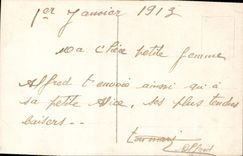 1er Janvier 1913
Ma chère petite femme
Alfred t'envoie ainsi qu'à
sa petite Alice, ses plus tendres
baisers --
ton mari
Alfred